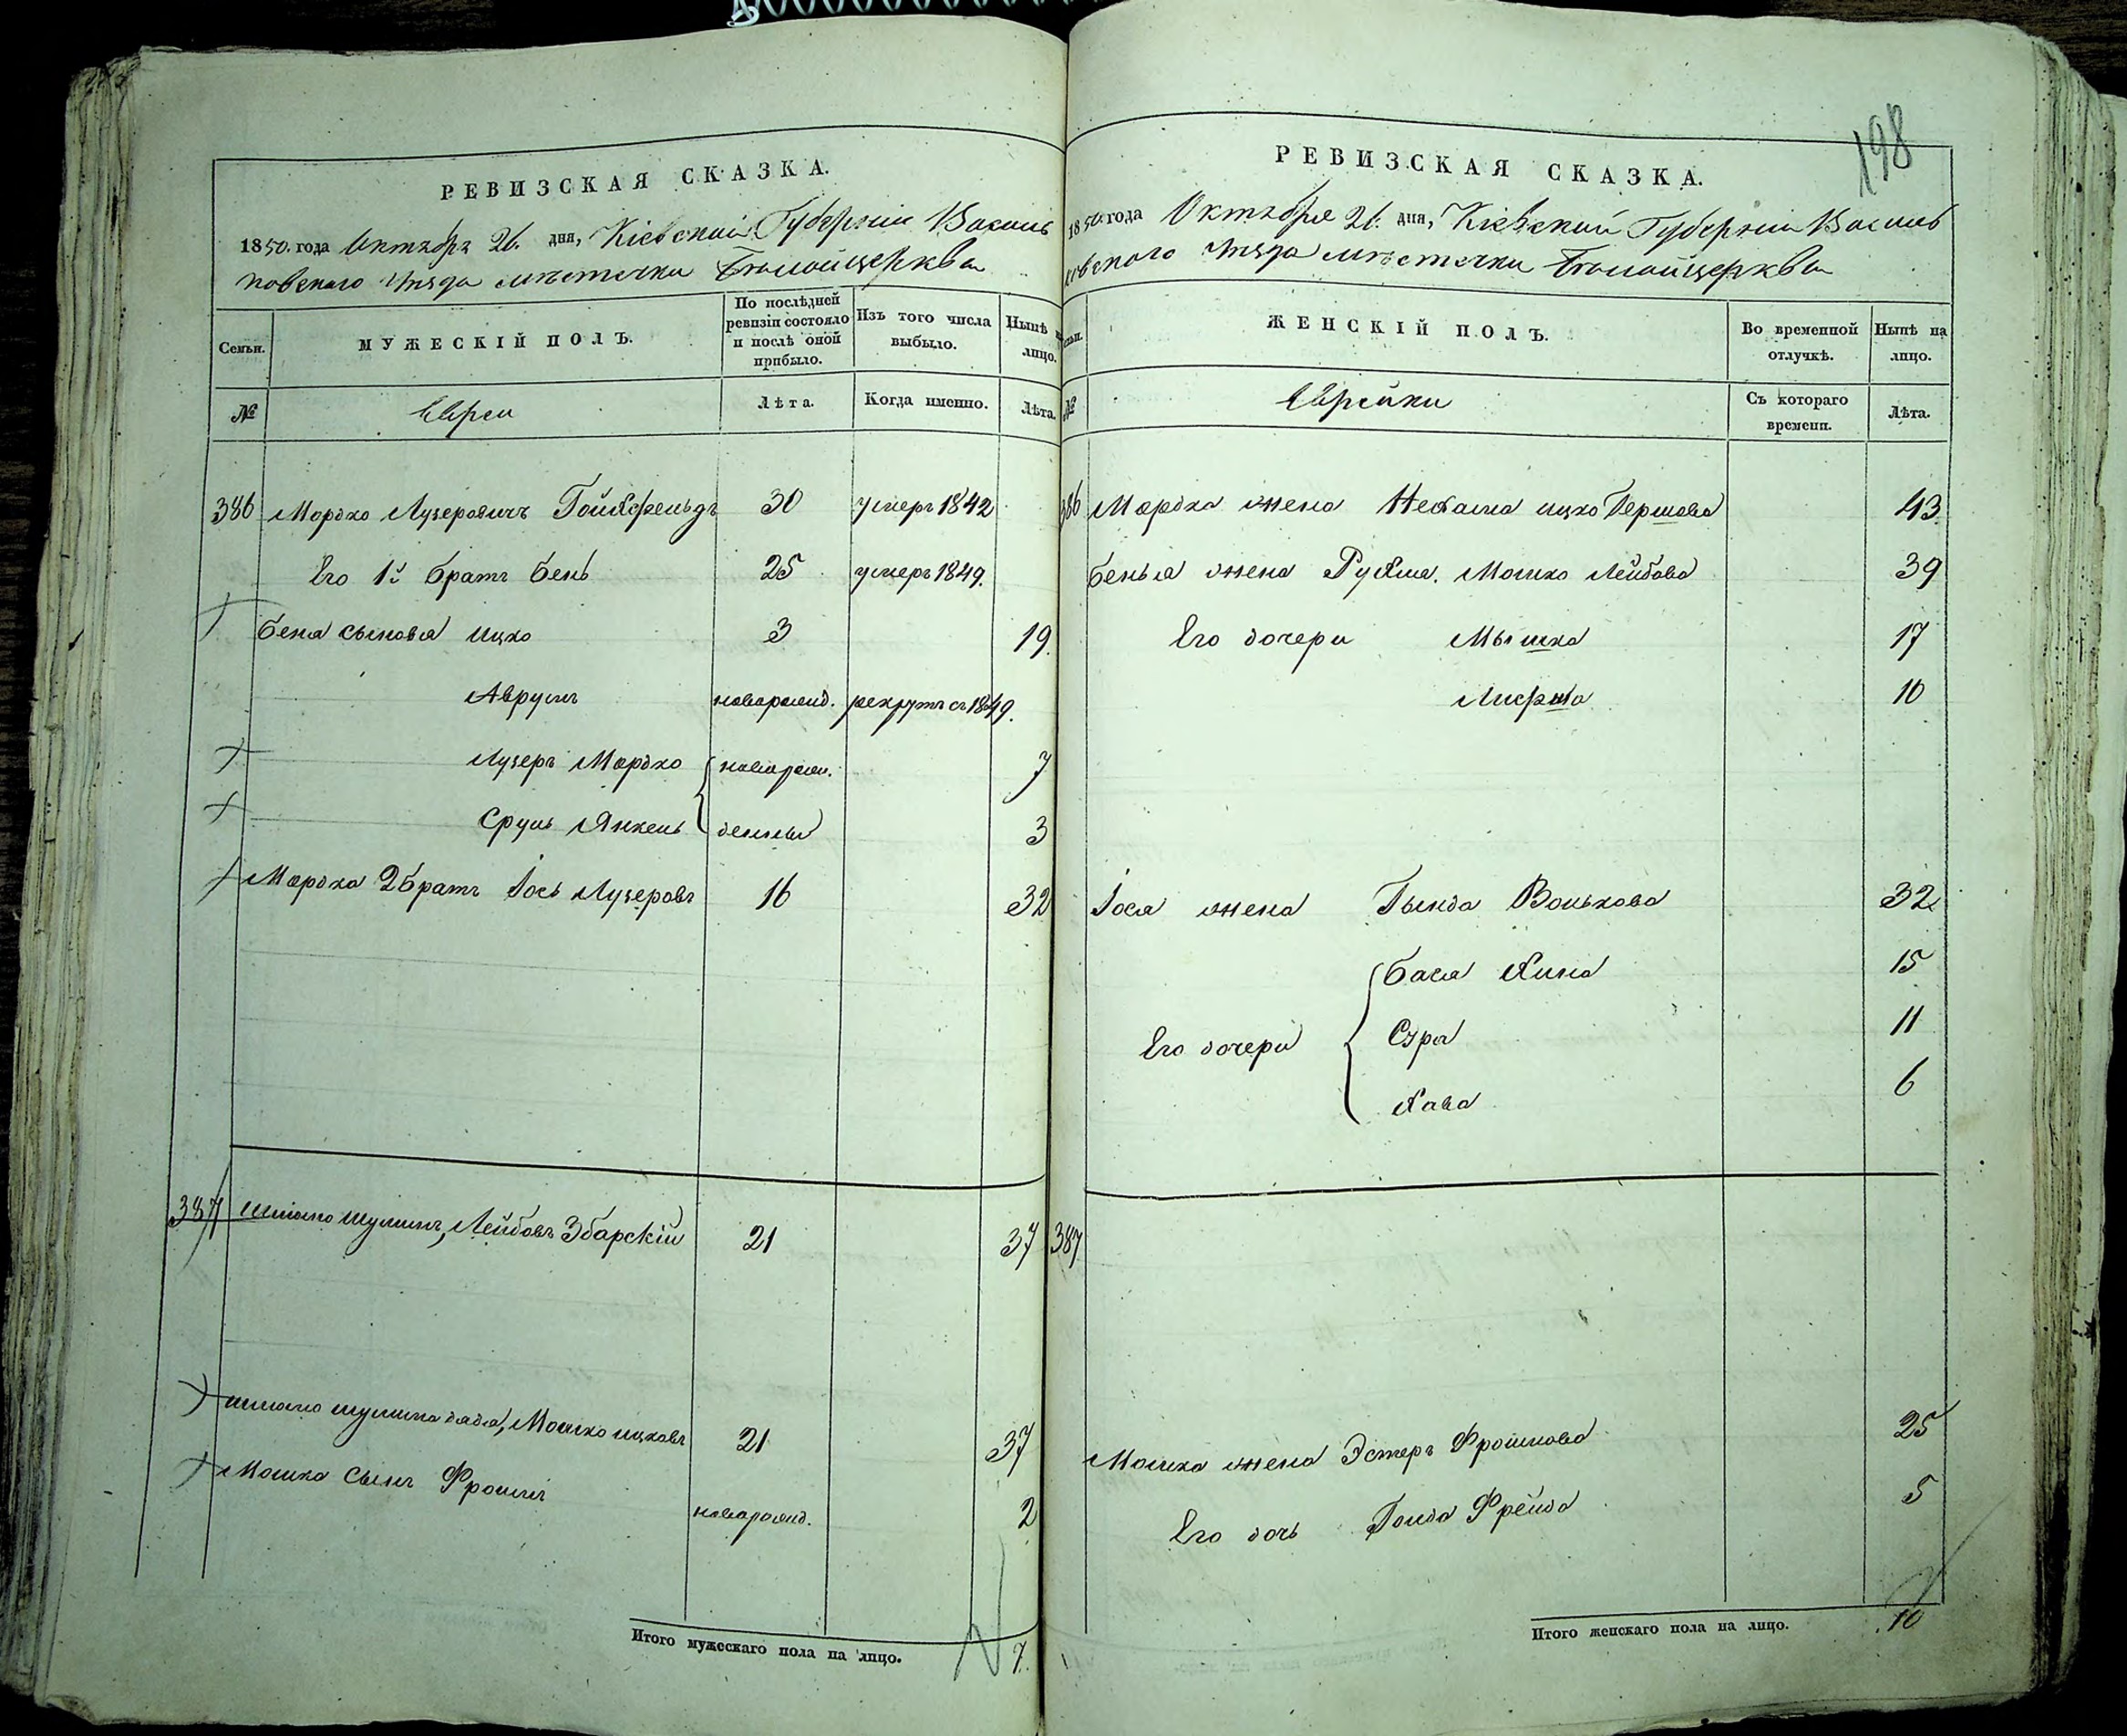 198
РЕВИЗСКАЯ СКАЗКА.
1850. года Октября 26. дня, Кіевской Губерніи Василь
ковского Уезда местечки Белойцеркви
Семьи.
МУЖЕСКІЙ ПОЛЪ.
По послѣдней ревизіи состояло и послѣ оной прибыло.
Изъ того числа выбыло.
Нынѣ на лицо.
№
Евреи
Лѣта.
Когда именно.
Лѣта.
386 Мордко Лузеровичъ Гойхфельдъ 30 умеръ 1842
Его 1й братъ Бень 25 умеръ 1849.
Беня сыновья Ицко 3 19.
Аврумъ новорожд. рекрутъ съ 1849.
Лузеръ Мордко новорож. 7
Сруль Янкель денны 3
Мордка 2 братъ Іось Лузеровъ 16 32
387 Шліомо Шулимъ, Лейбовъ Збарскій 21 37
Шліомо Шулима дядя, Мошко Ицковъ 21 37
Мошка сынъ Фроимъ новорожд. 2
Итого мужескаго пола на лицо. 7.
РЕВИЗСКАЯ СКАЗКА.
1850. года Октября 26. дня, Кіевской Губерніи Василь
ковского Уезда местечки Белойцеркви
Семьи.
ЖЕНСКІЙ ПОЛЪ.
Во временной отлучкѣ.
Нынѣ на лицо.
№
Еврейки
Съ котораго времени.
Лѣта.
386 Мордка жена Нехама Ицко Гершова 43
Бенья жена Рухля. Мошко Лейбова 39
Его дочери Мышка 17
Лифша 10
Іося жена Гында Волькова 32
Его дочери
Бася Хина 15
Сура 11
Хава 6
387
Мошка жена Эстеръ Фроимова 25
Его дочь Голда Фрейда 5
Итого женскаго пола на лицо. 10